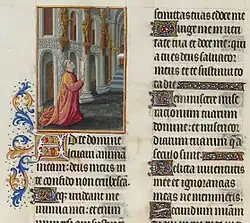 Ad te domine
levaui anima
meam: deus meus in te
confido non erubesca
Neq; irrideant me
inimici mei: etenim
semitas tuas edoce me.
Dirige me in veri
tate tua et doce me: qui
a tu es deus saluator
meus et te sustinui to
ta die
Reminiscere mise
rationum tuarum
domine: et misericor
diarum tuarum que a
seculo sunt
Delicta iuuentutis
mee et ignorantias
meas ne memineris